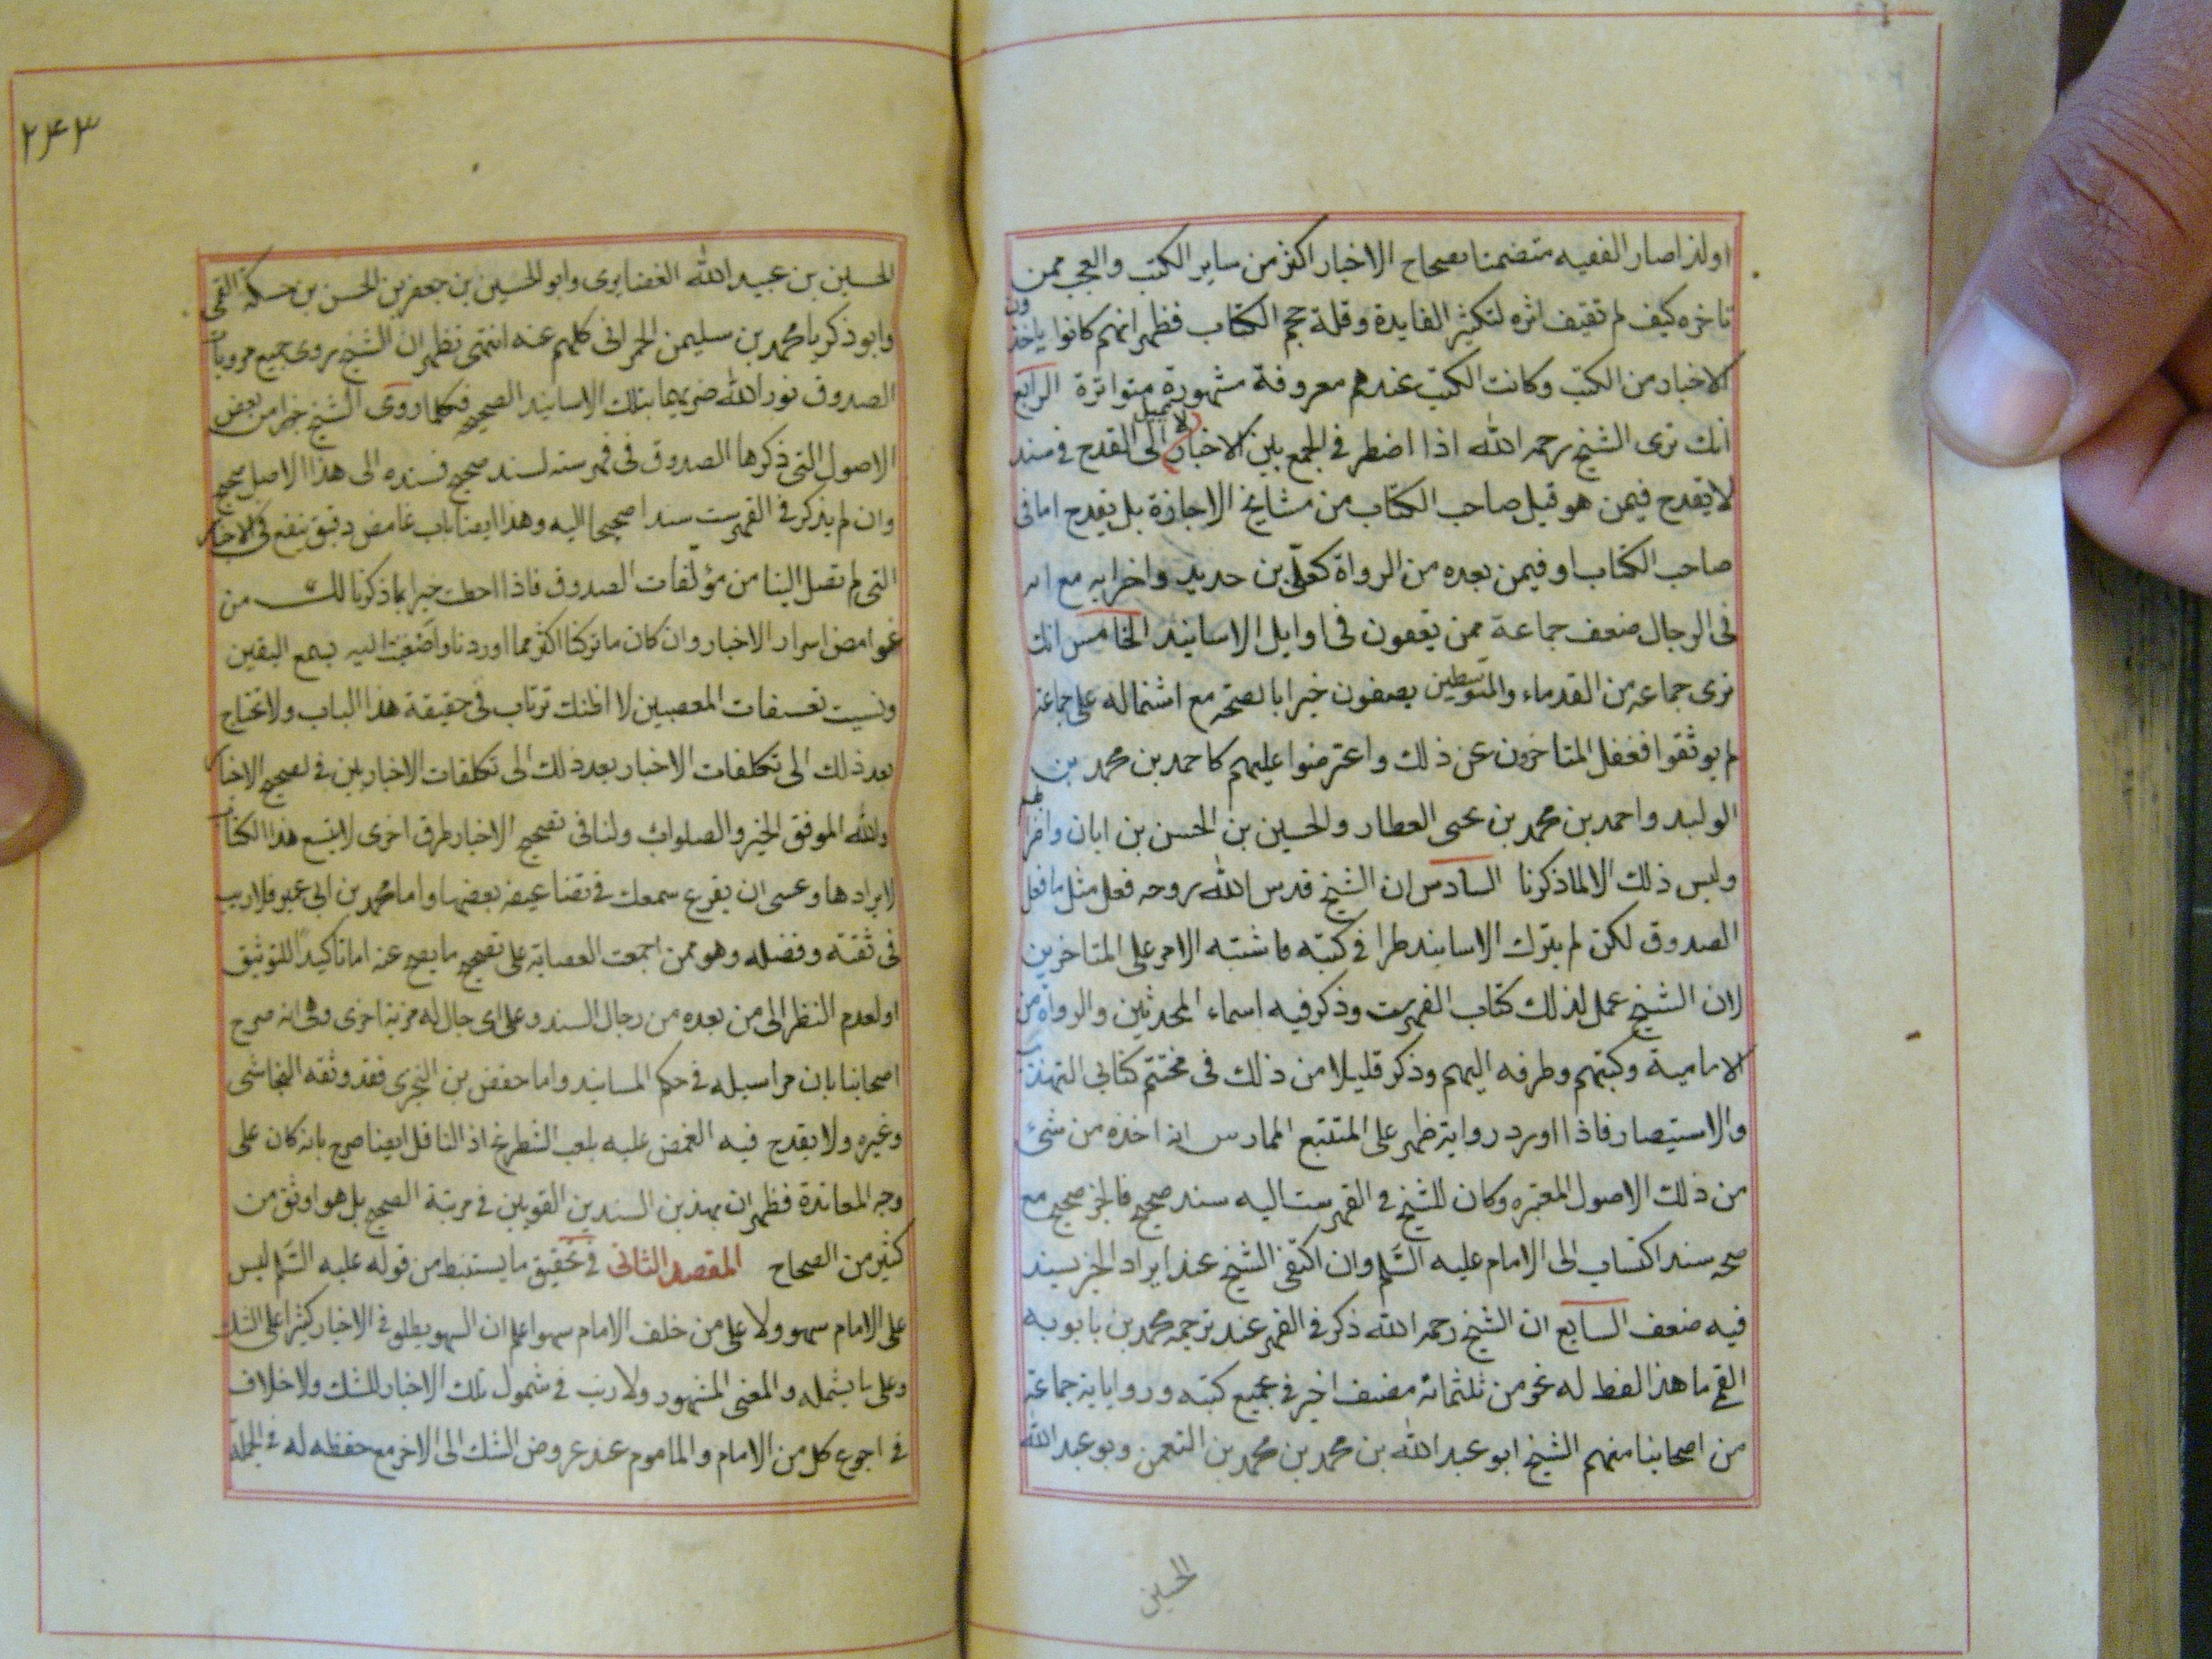 اولذا صار الفقيه متضمنا لصحاح الاخبار اكثر من ساير الكتب والعجب ممن
تاخره كيف لم تقيف اثره لتكثير الفايدة وقلة حجم الكتاب فظهر انهم كانوا ياخذون
الاخبار من الكتب وكانت الكتب عندهم معروفة مشهورة متواترة الرابع
انك ترى الشيخ رحمه الله اذا اضطر في الجمع بين الاخبار الى القدح في سند
لا يقدح فيمن هو قبل صاحب الكتاب من مشايخ الاجازة بل يقدح اما في
صاحب الكتاب او فيمن بعده من الرواة كعلي بن حديد واضرابه مع انه
في الرجال ضعف جماعة ممن يقعون في اوايل الاسانيد الخامس انك
ترى جماعة من القدماء والمتوسطين يصفون خبرا بالصحة مع اشتماله على جماعة
لم يوثقوا فغفل المتاخرون عن ذلك واعترضوا عليهم كاحمد بن محمد بن
الوليد واحمد بن محمد بن يحيى العطار والحسين بن الحسن بن ابان واضرابهم
وليس ذلك الا لما ذكرنا السادس ان الشيخ قدس الله روحه فعل مثل ما فعل
الصدوق لكن لم يترك الاسانيد طرا في كتبه فاشتبه الامر على المتاخرين
لان الشيخ عمل لذلك كتاب الفهرست وذكر فيه اسماء المحدثين والرواة من
الامامية وكتبهم وطرقه اليهم وذكر قليلا من ذلك في مختتم كتابي التهذيب
والاستبصار فاذا اورد رواية ظهر على المتتبع الممارس انه اخذه من شئ
من ذلك الاصول المعتبره وكان للشيخ في الفهرست اليه سند صحيح فالخبر صحيح مع
صحه سند اكتساب الى الامام عليه السلم وان اكتفى الشيخ عند ايراد الخبر بسند
فيه ضعف السابع ان الشيخ رحمه الله ذكر في الفهر عند ترجمه محمد بن بابويه
القمي ما هذا لفظ له نحو من ثلثمائة مصنف اخبر في بجميع كتبه ورواياته جماعة
من اصحابنا منهم الشيخ ابو عبد الله بن محمد بن محمد بن النعمن وبو عبد الله
الحسين
٢٤٣
الحسين بن عبيد الله الغضايرى وابو الحسين بن جعفر بن الحسن بن حسكه القمى
وابو ذكريا محمد بن سليمن الحمرانى كلهم عنه انتهى فظهر ان الشيخ روى جميع مرويات
الصدوق نور الله ضريحهما بتلك الاسانيد الصحيحه فكلما روى الشيخ خبرا من بعض
الاصول التي ذكرها الصدوق في فهرسته لسند صحيح فسنده الى هذا الاصل صحيح
وان لم يذكر في الفهرست سندا صحيحا اليه وهذا ايضا باب غامض دقيق ينفع في الاخبار
التي لم تصل الينا من مؤلفات الصدوق فاذا احطت خبرا بما ذكرنا لك من
غوامض اسرار الاخبار وان كان ما تركنا اكثر مما اوردنا واصغيت اليه بسمع اليقين
ونسيت تعسفات المعصبين لا اظنك ترتاب في حقيقة هذا الباب ولا تحتاج
بعد ذلك الى تكلفات الاخبار بعد ذلك الى تكلفات الاخباريين في تصحيح الاخبار
والله الموفق الخير والصلوات ولنا في تصحيح الاخبار طرق اخرى لا يتسع هذا الكتاب
لايرادها وعسى ان يقرع سمعك في تضاعيفه بعضها واما محمد بن ابى عمير فلا ريب
في ثقته وفضله وهو ممن اجمعت العصابة على تصحيح ما يصح عنه اما تاكيدا للتوثيق
او لعدم النظر الى من بعده من رجال السند وعلى اى حال له مزية اخرى وهى انه صرح
اصحابنا بان مراسيله في حكم المسانيد واما حفص بن البخترى فقد وثقه النجاشى
وغيره ولا يقدح فيه الغمض عليه بلعب الشطرنج اذ الناقل ايضا صرح بانه كان على
وجه المعاندة فظهر ان بهذين السندين القويين في مرتبة الصحيح بل هو اوثق من
كثير من الصحاح المقصد الثانى في تحقيق ما يستنبط من قوله عليه السلم ليس
على الامام سهو ولا على من خلف الامام سهو اعلم ان السهو يطلق في الاخبار كثيرا على الشك
وعلى ما يشمله والمعنى المشهور ولا ريب في شمول تلك الاخبار للشك ولا خلاف
في اجوع كل من الامام والماموم عند عروض الشك الى الاخر مع حفظه له في الجملة